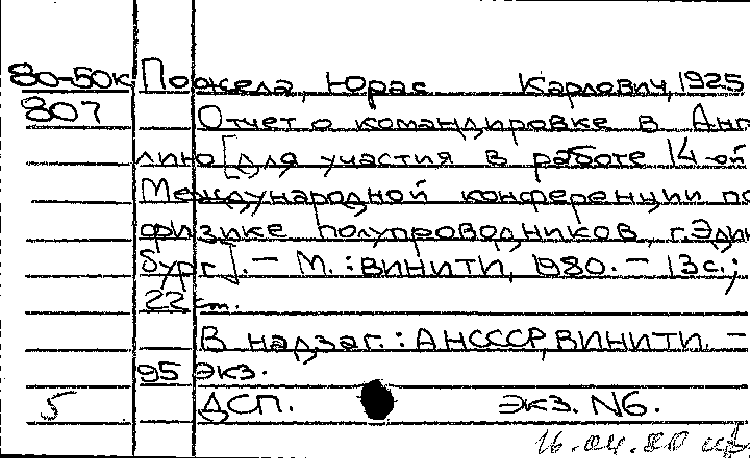 80-50к Пожела, Юрас Карлович, 1925
807 Отчет о командировке в Анг
лию [для участия в работе 14-ой
Международной конференции по
физике полупроводников, г.Эдин
бург]. – М. : ВИНИТИ, 1980. – 13 с.;
22 см.
В надзаг. : АНСССР, ВИНИТИ. –
95 экз.
5 ДСП. экз. N6.
16.04.80